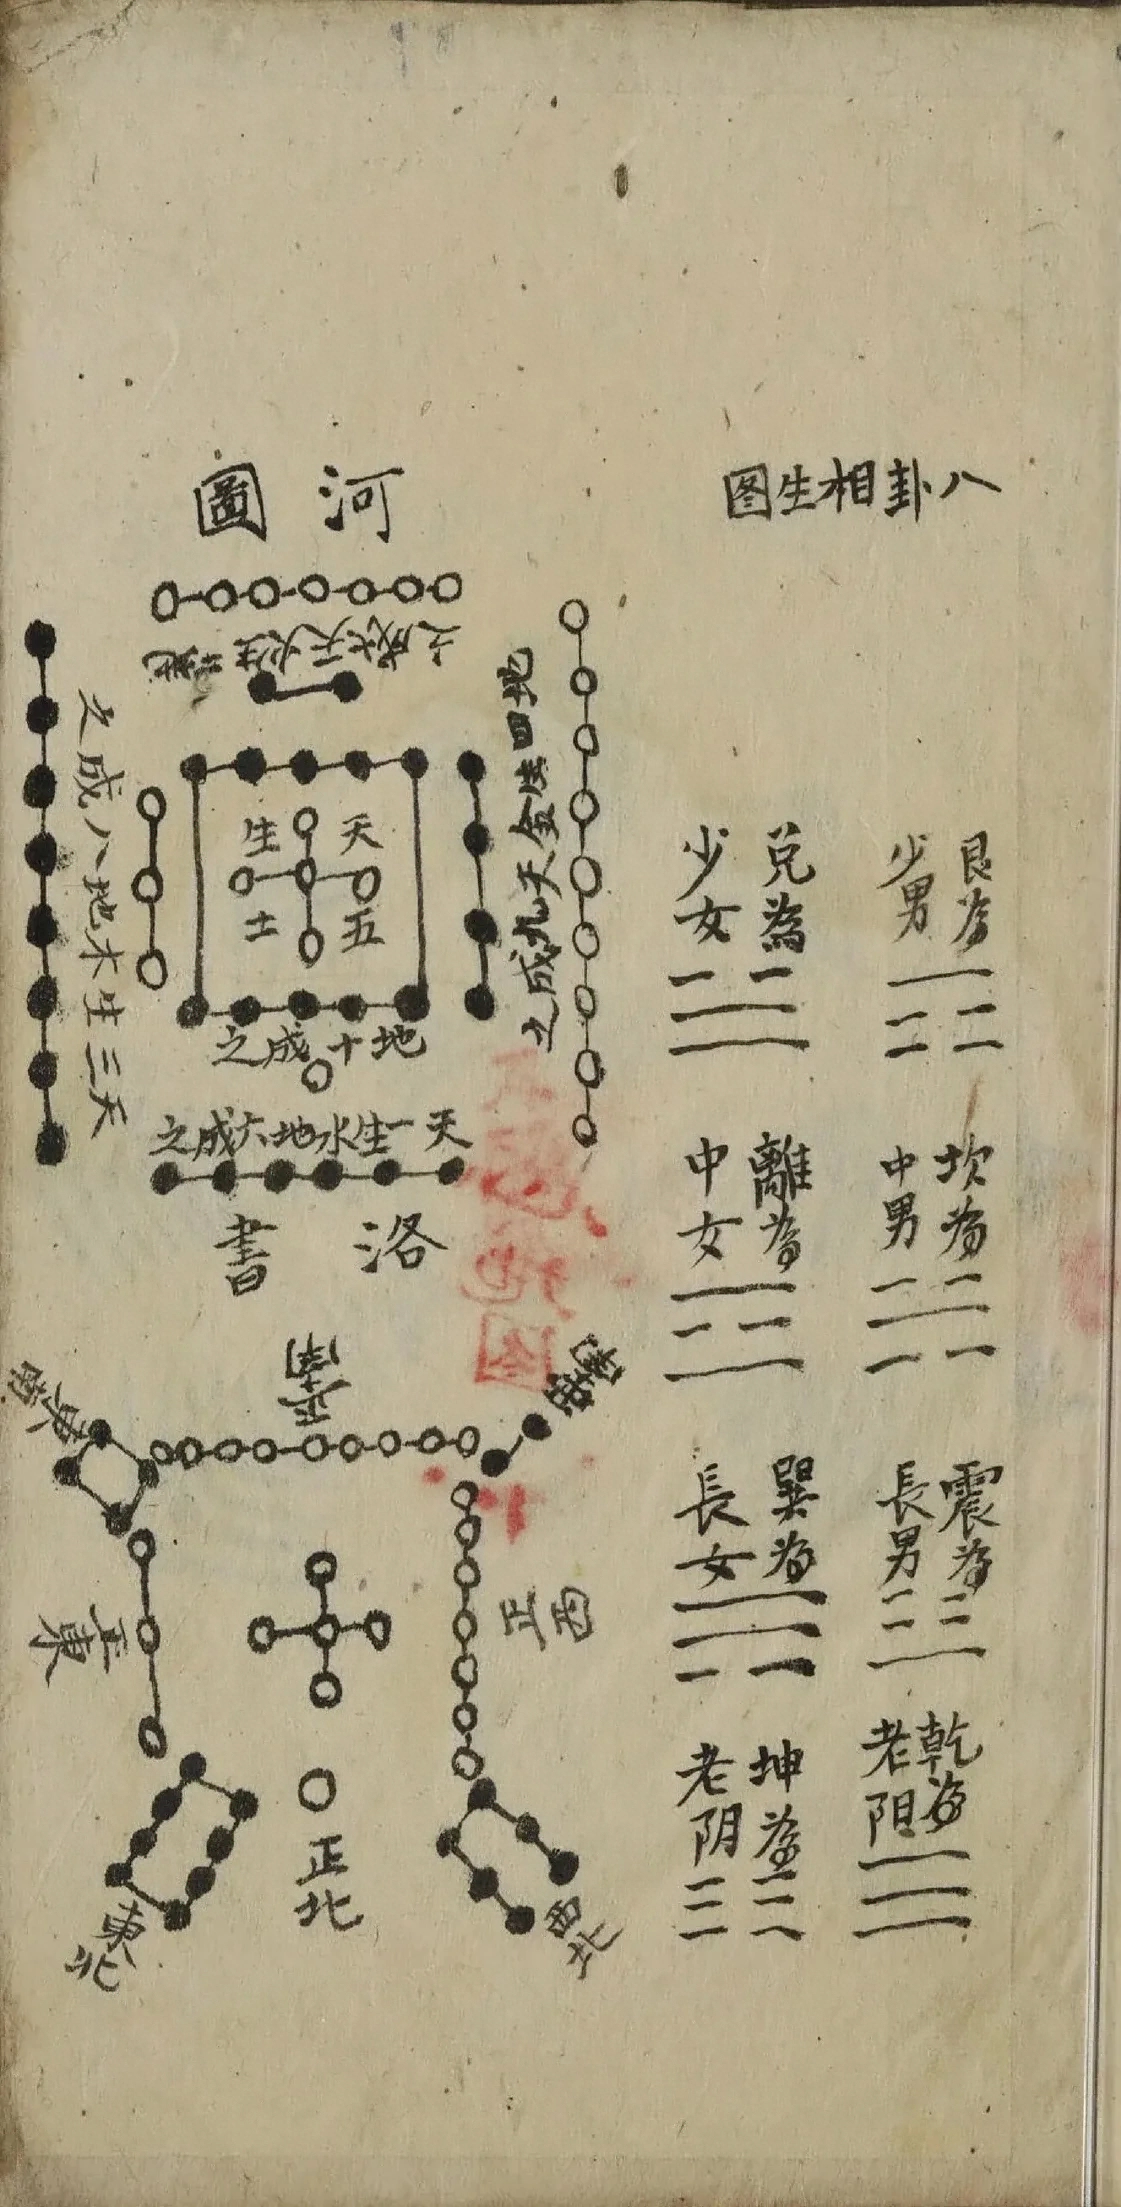 八卦相生图
艮為
少男
坎為
中男
震為
長男
乾為
老阳
兑為
少女
離為
中女
巽為
長女
坤為
老阴
河圖
地二生火天七成之
天三生木地八成之
地四生金天九成之
天五
生土
地十成之
天一生水地六成之
洛書
正南
西南
東南
正西
正東
正北
西北
東北